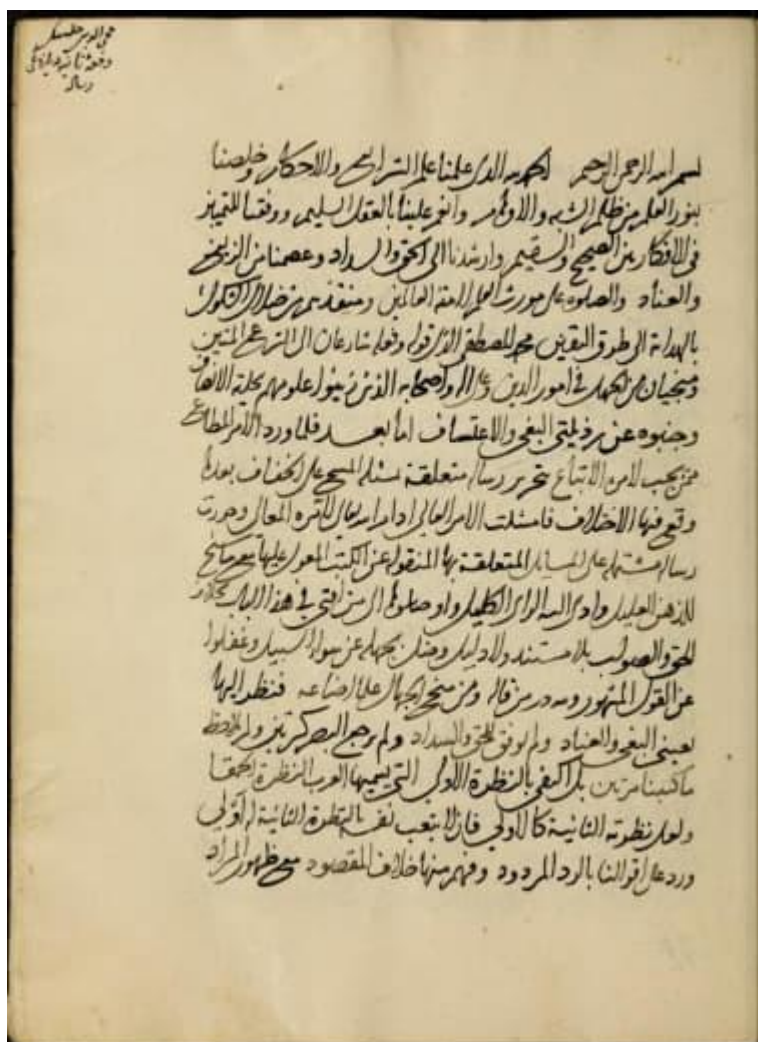 محى الدين
دفعه ثانيه
رساله
بسم الله الرحمن الرحيم الحمد لله الذى علمنا علم الشرايع والاحكام وخلصنا
بنور العلم من ظلم الشبه والاوهام وانعم علينا بالعقل السليم ووفقنا للتميز
فى الافكار بين الصحيح والسقيم وارشدنا الى الحق والسداد وعصمنا من الزيغ
والعناد والصلوه على مورث العلم للامة العالمين ومنقذهم من ضلال الشكوك
بالهداية الى طرق اليقين محمد المصطفى الذى قوله وفعله شارعان الى الشرع المتين
ومنجيان من الجهل فى امور الدين وعلى اله واصحابه الذين زينوا علومهم بحلية الانصاف
وجنبوه عن رذيلتى البغى والاعتساف اما بعد فلما ورد الامر المطاع
ممن يجب لامره الاتباع بتحرير رسالة متعلقة بمسئلة المسح على الخفاف بعدما
وقع فيها الاختلاف فامتثلت الامر العالى ادام الله تعالى للامره المعالى وحررت
رسالة مشتملة على المسايل المتعلقة بها المنقولة عن الكتب المعول عليها مع ما سنح
للذهن العليل وادى اليه الراى الكليل واوصلوها الى من افتى فى هذا الباب بخلاف
الحق والصواب بلا مستند ولا دليل وضل بجهله عن سواء السبيل وغفلوا
عن القول المشهور ولله در من قال ومن منح الجهال علما اضاعه فنظر اليها
بعينى البغى والعناد ولم يوفق للحق والسداد ولم يرجع البصر كرتين ولم يلاحظ
ما كتبنا مرتين بل اكتفى بالنظرة الاولى التى يسميها العرب النظرة الحمقا
ولعل نظرته الثانية كالاولى فان لا يتعب نفسه بالنظرة الثانية له اولى
ورد على اقوالنا بالرد المردود وفهم منها خلاف المقصود مع ظهور المراد